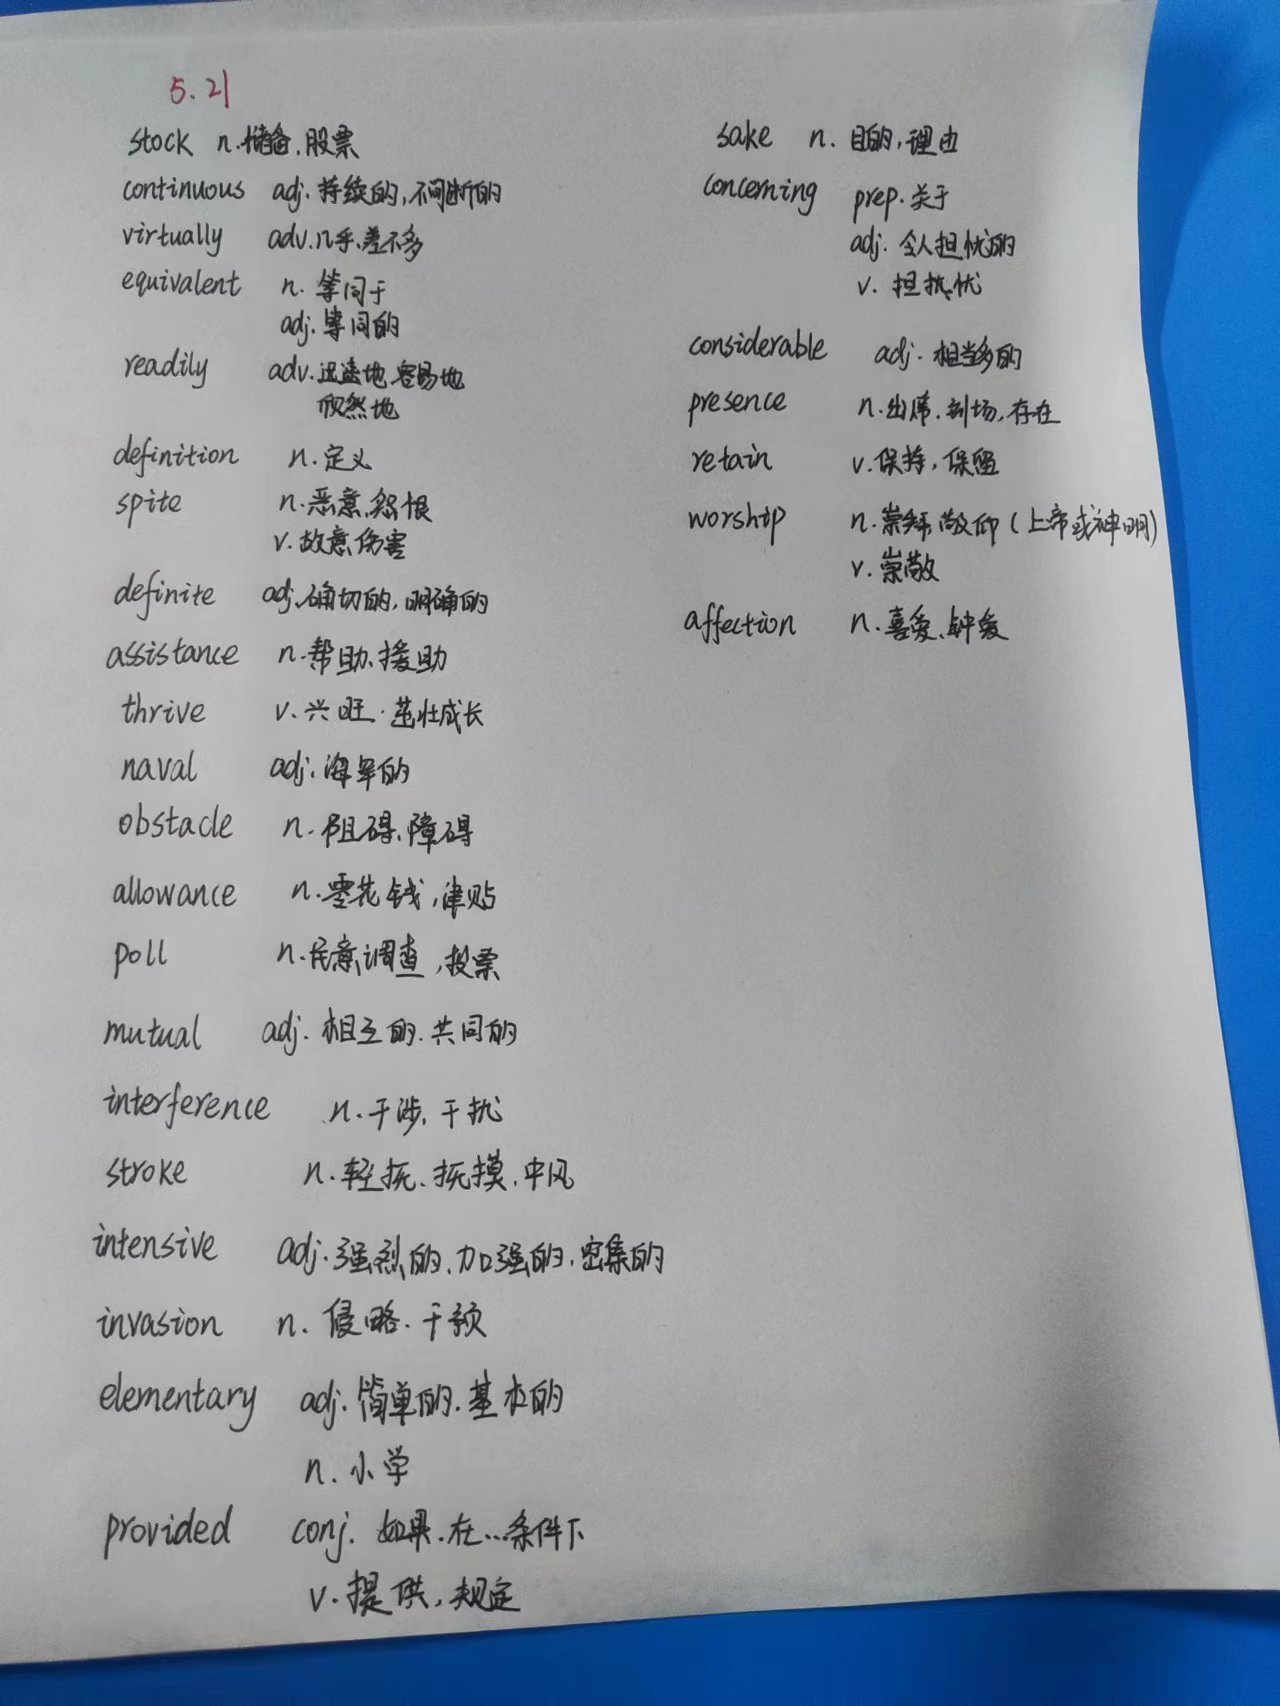 5.21
stock n.储备、股票
continuous adj.持续的,不间断的
virtually adv.几乎、差不多
equivalent n.等同于
adj.等同的
readily adv.迅速地、容易地
欣然地
definition n.定义
spite n.恶意、怨恨
v.故意伤害
definite adj.确切的,明确的
assistance n.帮助、援助
thrive v.兴旺.茁壮成长
naval adj.海军的
obstacle n.阻碍、障碍
allowance n.零花钱,津贴
poll n.民意调查,投票
mutual adj.相互的.共同的
interference n.干涉,干扰
stroke n.轻抚、抚摸、中风
intensive adj.强烈的、加强的,密集的
invasion n.侵略.干预
elementary adj.简单的、基本的
n.小学
provided conj.如果、在...条件下
v.提供,规定
sake n.目的,理由
concerning prep.关于
adj.令人担忧的
v.担忧
considerable adj.相当多的
presence n.出席、到场,存在
retain v.保持,保留
worship n.崇拜,敬仰(上帝或神明)
v.崇敬
affection n.喜爱、钟爱